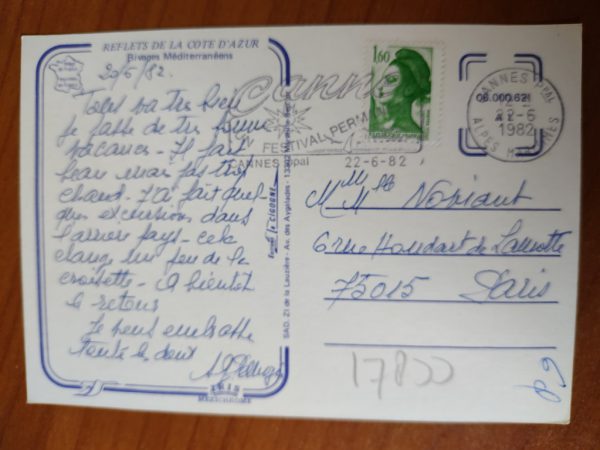 REFLETS DE LA COTE D'AZUR
Rivages Méditerranéens
20/6/82.
Tout va très bien
je passe de très bonnes
vacances - Il fait
beau mais pas trop
chaud. J'ai fait quel-
ques excursions dans
l'arrière pays - cela
change un peu de la
croisette - A bientôt
le retour
Je vous embrasse
toute les deux
IRIS
MEXICHROME
Cannes
FESTIVAL PERMA
CANNES ppal 22-6-82
1,60
06.000.621
A 1
CANNES ppal
22-6
1982
ALPES MARITIMES
Edité la CIGOGNE
SAD, ZI de la Lauzière - Av. des Aygalades - 13
Mmes
6 rue Houdart de Lamotte
75015 Paris
17800